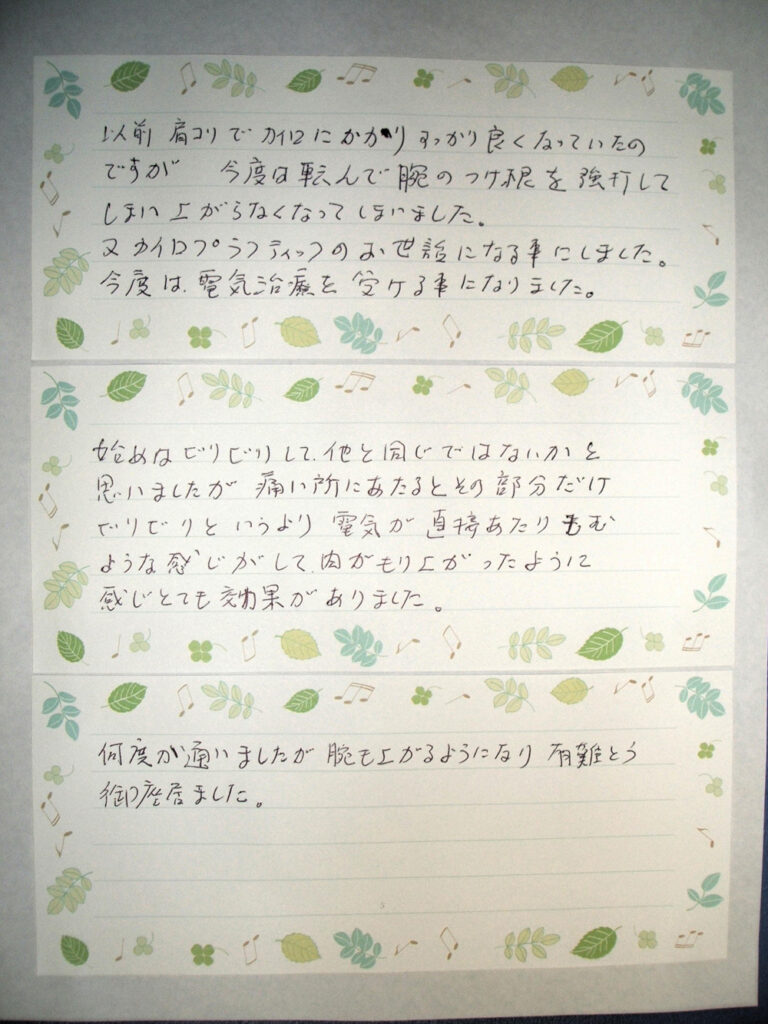 以前 肩コリで カイロにかかり すっかり良くなっていたの
ですが 今度は転んで腕のつけ根を強打して
しまい上がらなくなってしまいました。
又カイロプラクティックのお世話になる事にしました。
今度は、電気治療を受ける事になりました。
始めはビリビリして、他と同じではないかと
思いましたが 痛い所にあたるとその部分だけ
ビリビリというより電気が直接あたりもむ
ような感じがして、肉がもり上がったように
感じとても効果がありました。
何度か通いましたが 腕も上がるようになり 有難とう
御座居ました。